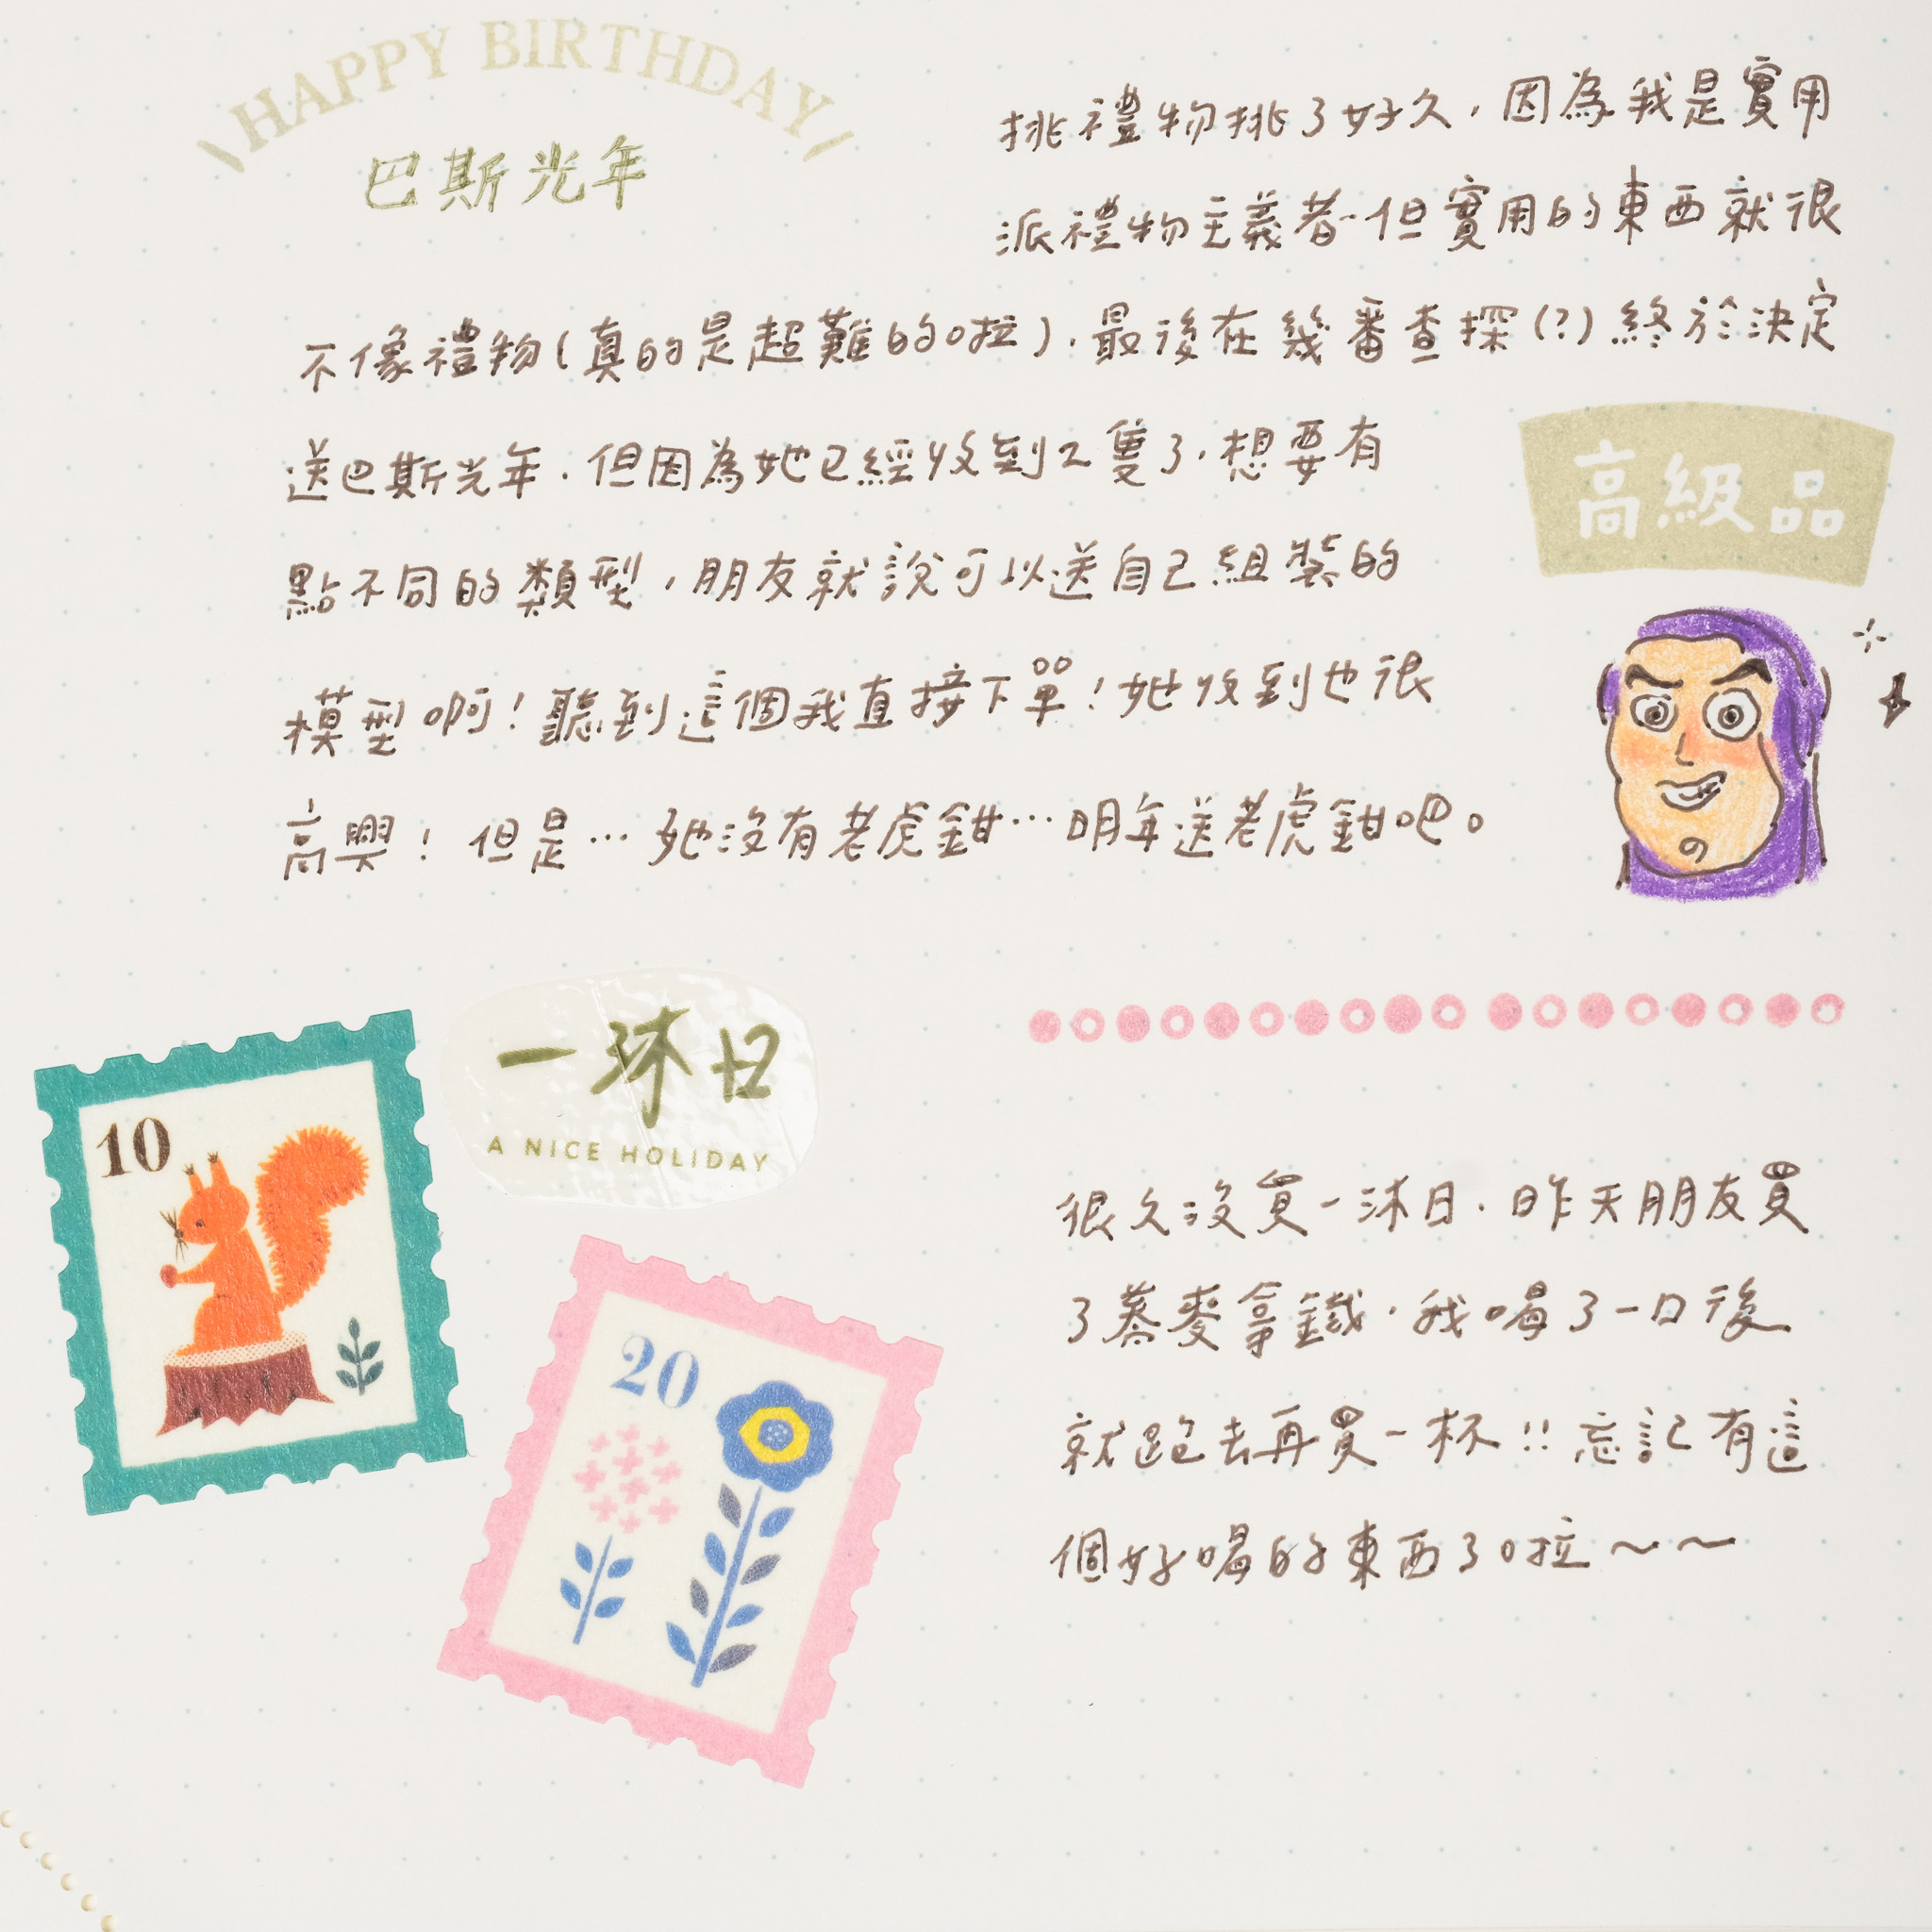 HAPPY BIRTHDAY
巴斯光年
挑禮物挑了好久，因為我是實用
派禮物主義者-但實用的東西就很
不像禮物(真的是超難的啦)．最後在幾番查探(?)終於決定
送巴斯光年．但因為她已經收到2隻了．想要有
點不同的類型，朋友就說可以送自己組裝的
模型啊！聽到這個我直接下單！她收到也很
高興！但是…她沒有老虎鉗…明年送老虎鉗吧。
高級品
一沐日
A NICE HOLIDAY
10
20
很久沒買一沐日．昨天朋友買
了蕎麥拿鐵．我喝了一口後
就跑去再買一杯!!忘記有這
個好喝的東西了啦～～